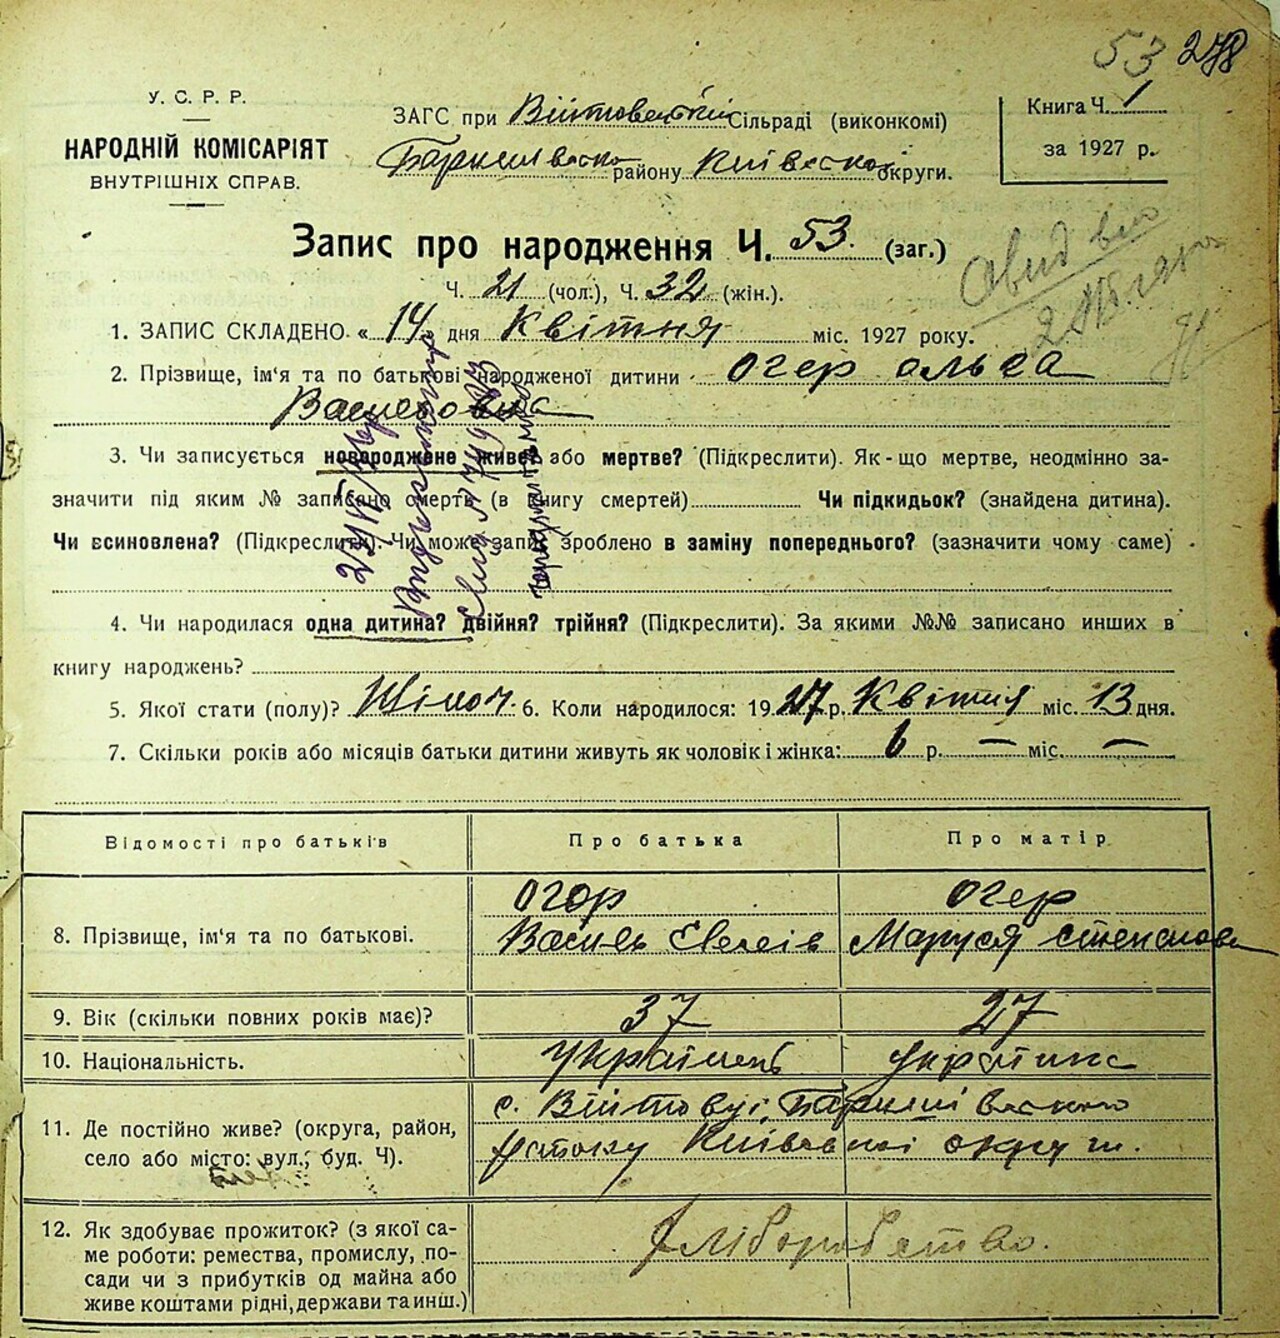 53 278
У. С. Р. Р.
НАРОДНІЙ КОМІСАРІЯТ
ВНУТРІШНІХ СПРАВ.
ЗАГС при Війтовецькій Сільраді (виконкомі)
Баришівсько району Київсько округи.
Книга Ч. 1
за 1927 р.
Запис про народження Ч. 53. (заг.)
Ч. 21 (чол.), Ч. 32 (жін.).
1. ЗАПИС СКЛАДЕНО „14„ дня Квітня міс. 1927 року.
2. Прізвище, ім'я та по батькові народженої дитини Огер ольга
Василовна
3. Чи записується новороджене живе або мертве? (Підкреслити). Як-що мертве, неодмінно за-
значити під яким № записано смерть (в книгу смертей) Чи підкидьок? (знайдена дитина).
Чи всиновлена? (Підкреслити). Чи може запис зроблено в заміну попереднього? (зазначити чому саме)
4. Чи народилася одна дитина? двійня? трійня? (Підкреслити). За якими №№ записано инших в
книгу народжень?
5. Якої стати (полу)? Жіноч. 6. Коли народилося: 1927 р. Квітня міс. 13 дня.
7. Скільки років або місяців батьки дитини живуть як чоловік і жінка: 6 р. — міс. —
Відомості про батьків Про батька Про матір
8. Прізвище, ім'я та по батькові.
Огор
Василь
Огер
Маруся Степанова
9. Вік (скільки повних років має)? 37 27
10. Національність. Українець українка
11. Де постійно живе? (округа, район,
село або місто: вул., буд. Ч).
с. Війтовці, Баришівського
Району Київської округи.
12. Як здобуває прожиток? (з якої са-
ме роботи: ремества, промислу, по-
сади чи з прибутків од майна або
живе коштами рідні, держави та инш.)
Хліборобство.